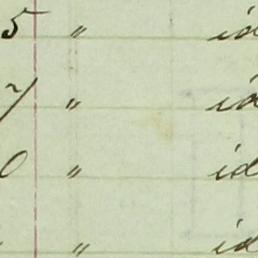 5 " id
7 " id
0 " id
" id